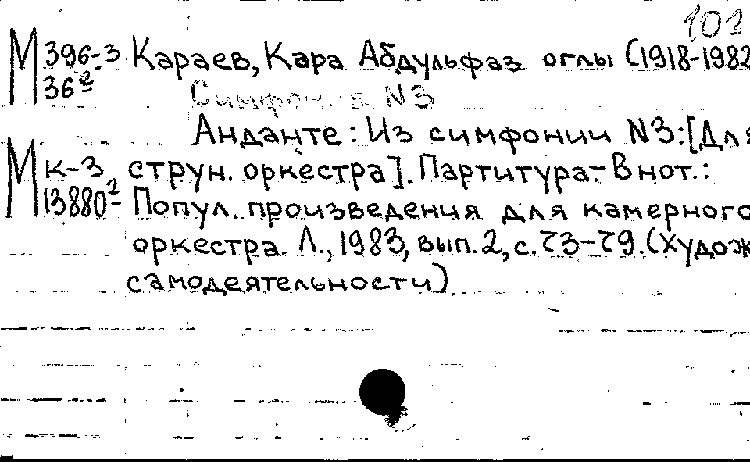 101
М 396-3 Караев, Кара Абдульфаз оглы (1918-1982
36² Симфония N3
Анданте: Из симфонии N3: [Для
М к-3 струн. оркестра]. Партитура - В нот.:
13880² Попул. произведения для камерного
оркестра. Л., 1983, вып. 2, с. 73-79. (Худож
самодеятельности)